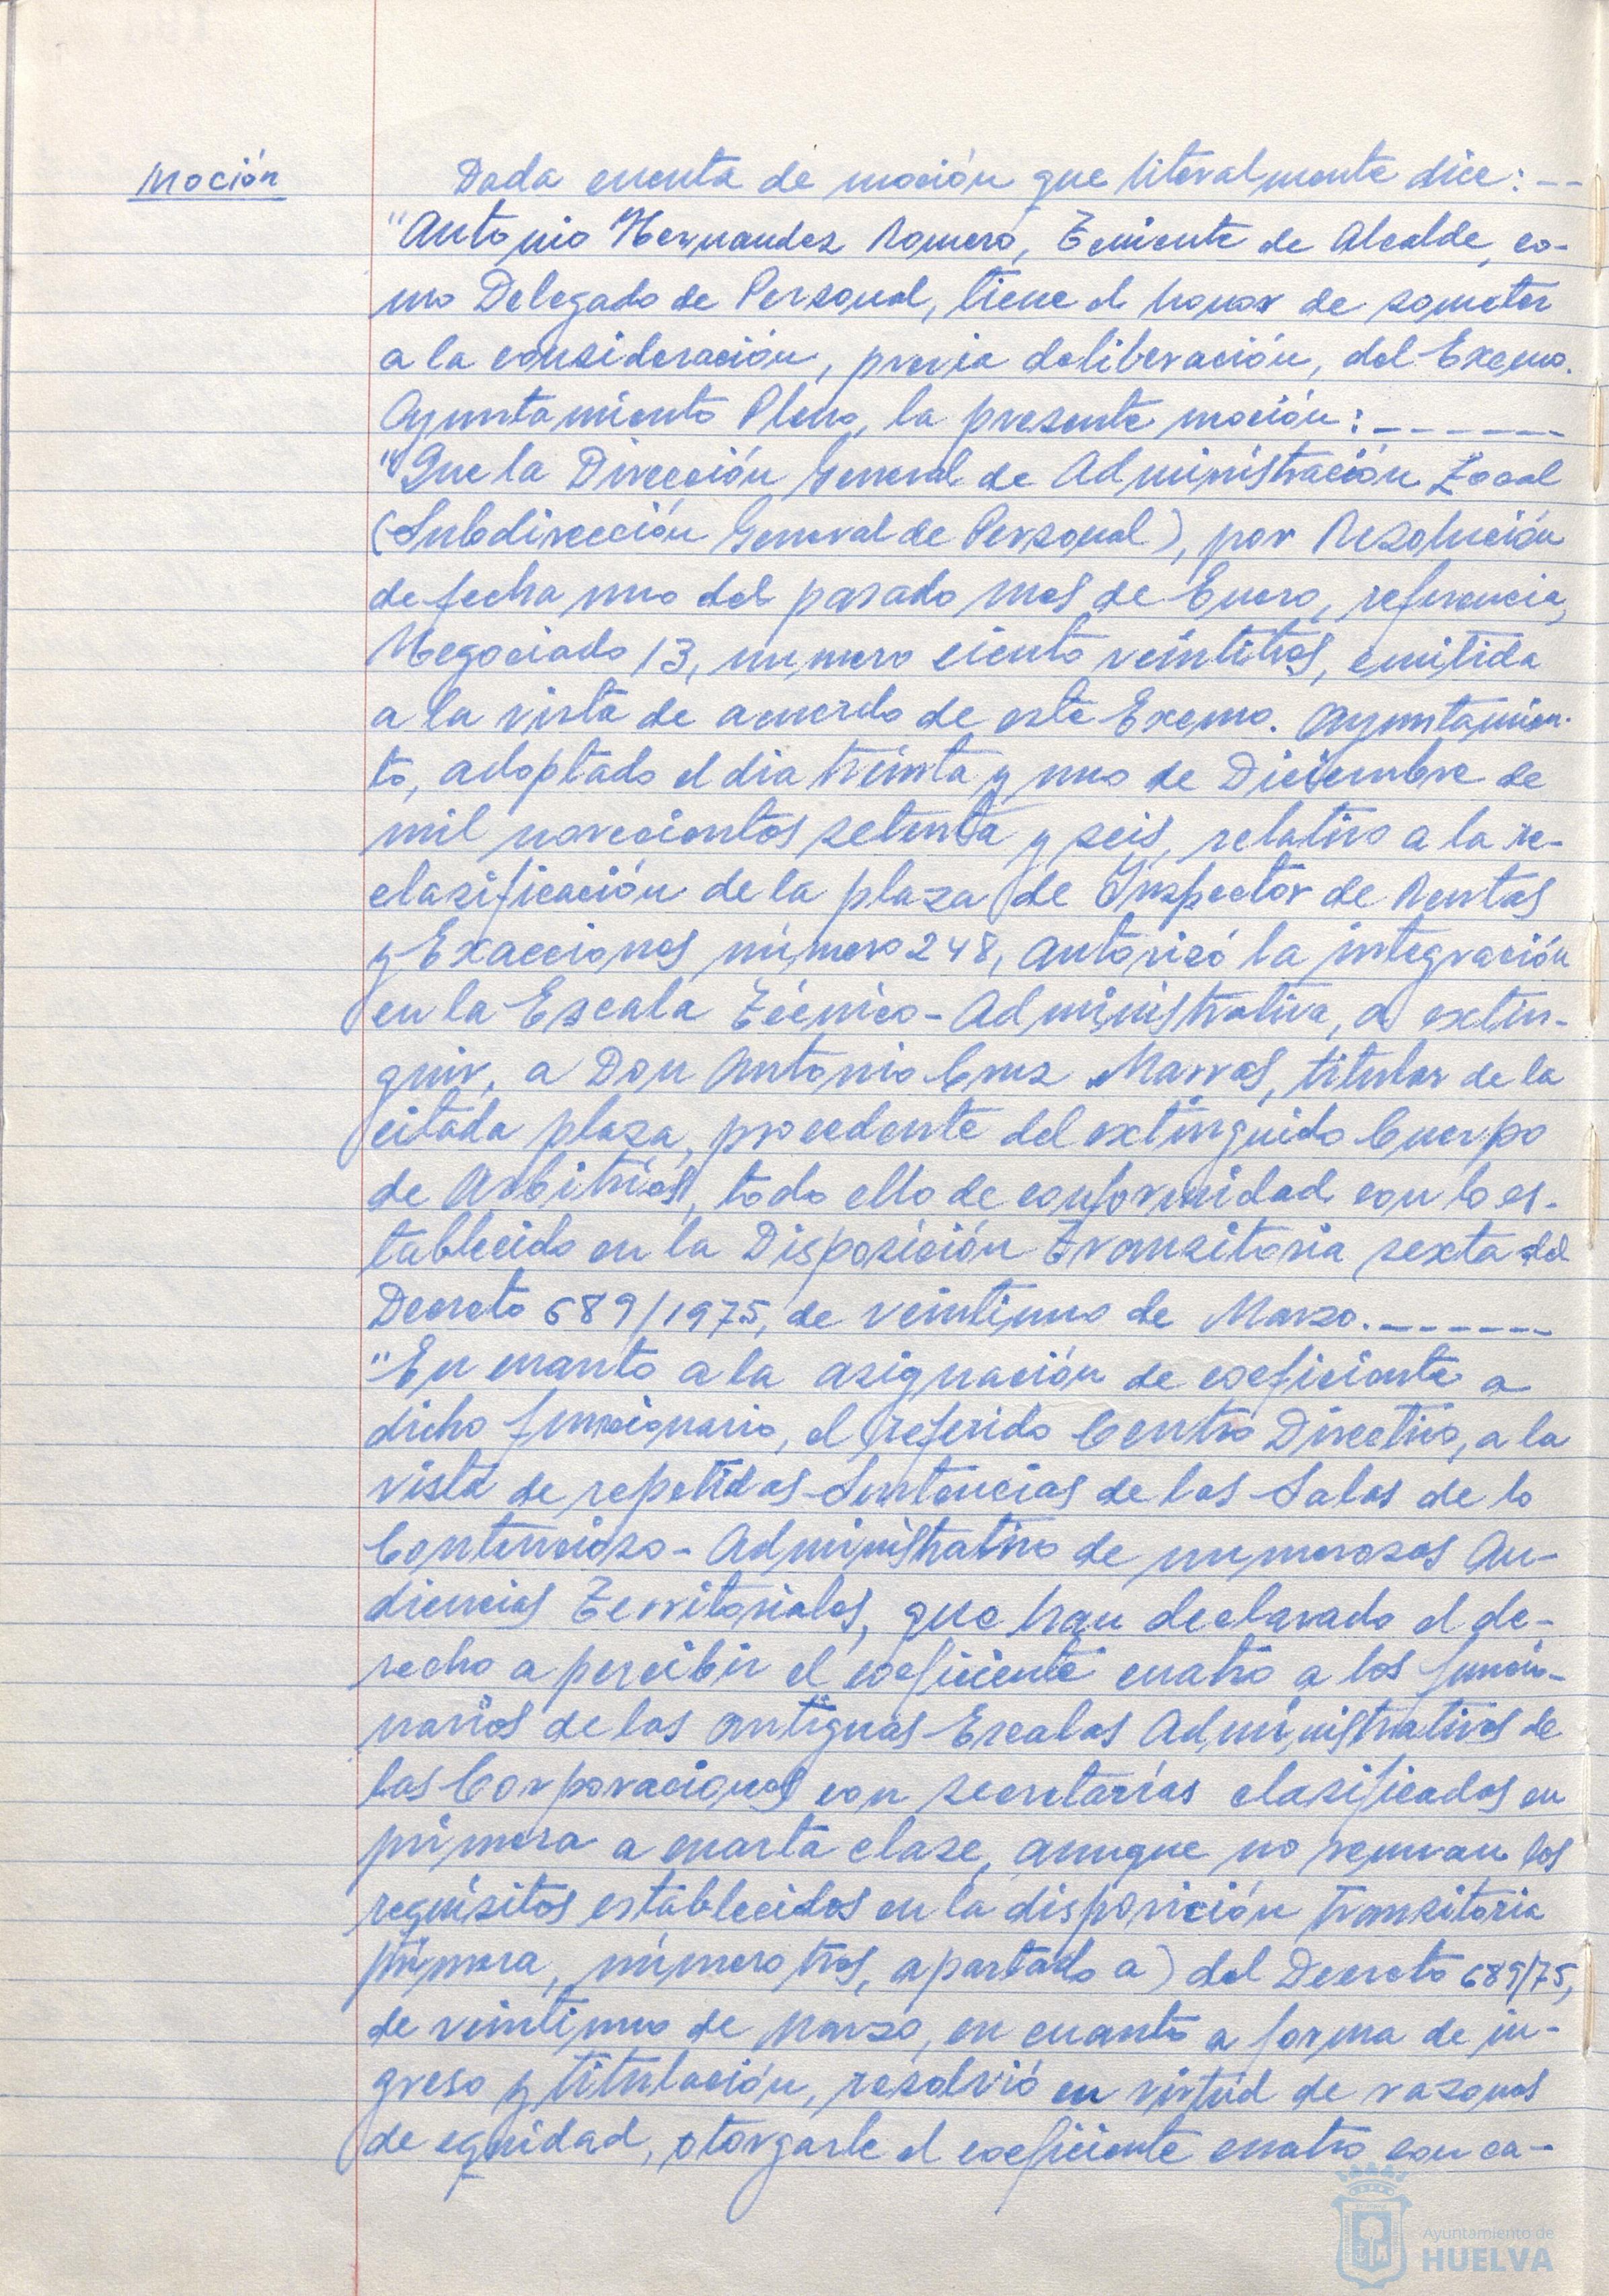 Moción
Dada cuenta de moción que literalmente dice: --
"Antonio Hernandez Romero, Teniente de Alcalde, co-
mo Delegado de Personal, tiene el honor de someter
a la consideración, previa deliberación, del Excmo.
Ayuntamiento Pleno, la presente moción: ------
"Que la Dirección General de Administración Local
(Subdirección General de Personal), por Resolución
de fecha uno del pasado mes de Enero, referencia,
Negociado 13, numero ciento veintitres, emitida
a la vista de acuerdo de este Excmo. Ayuntamien-
to, adoptado el dia treinta y uno de Diciembre de
mil novecientos setenta y seis, relativo a la re-
clasificación de la plaza de Inspector de Rentas
y Exacciones número 248, autorizó la integración
en la Escala Técnico-Administrativa, a extin-
guir, a Don Antonio Cruz Marros, titular de la
citada plaza, procedente del extinguido Cuerpo
de Arbitrios, todo ello de conformidad con lo es-
tablecido en la Disposición Transitoria sexta del
Decreto 689/1975, de veintiuno de Marzo. ------
"En cuanto a la asignación de coeficiente a
dicho funcionario, el referido Centro Directivo, a la
vista de repetidas Sentencias de las Salas de lo
Contencioso-Administrativo de numerosas Au-
diencias Territoriales, que han declarado el de-
recho a percibir el coeficiente cuatro a los funcio-
narios de las antiguas Escalas Administrativas de
las Corporaciones con secretarías clasificadas en
primera a cuarta clase, aunque no reunan los
requisitos establecidos en la disposición transitoria
primera, número tres, apartado a) del Decreto 689/75,
de veintiuno de Marzo, en cuanto a forma de in-
greso y titulación, resolvió en virtud de razones
de equidad, otorgarle el coeficiente cuatro con ca-
Ayuntamiento de
HUELVA